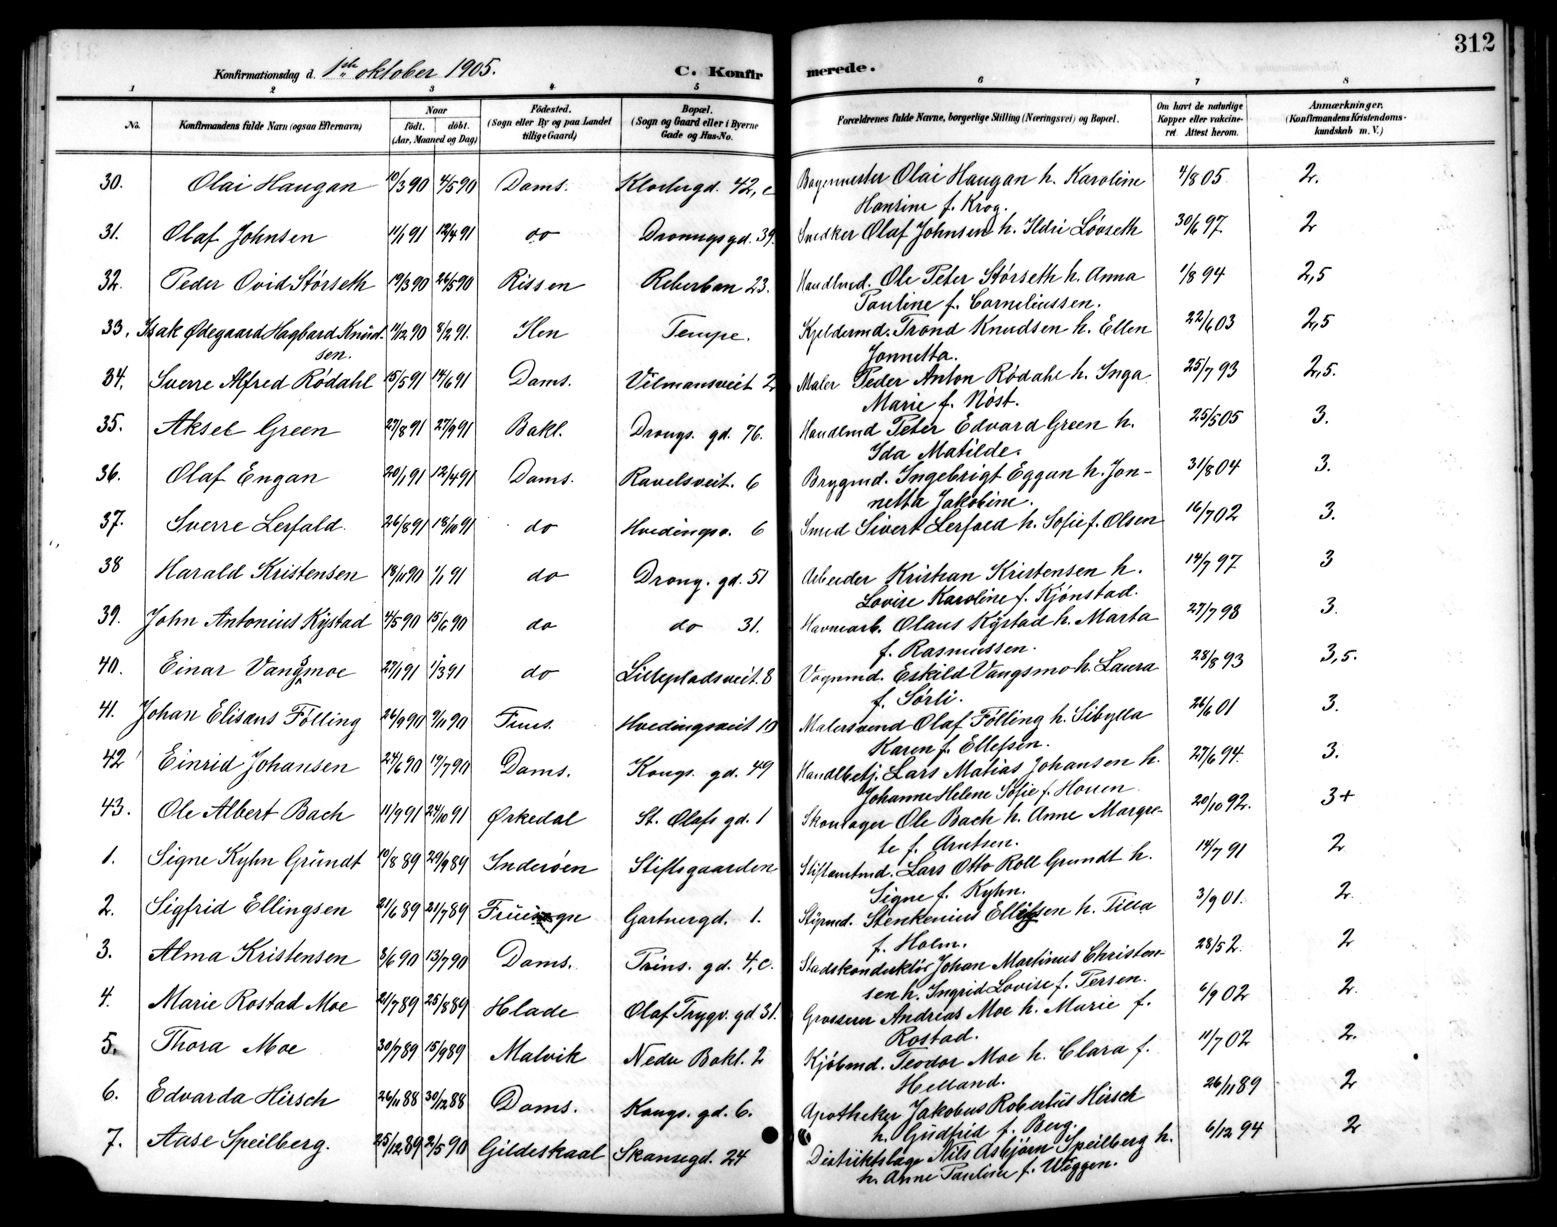 312
Konfirmationsdag d. 1ste oktober 1905. C. Konfirmerede.
1 2 3 4 5 6 7 8
No. Konfirmandens fulde Navn (ogsaa Efternavn) Naar født. døbt. (Aar, Maaned og Dag) Fødested. (Sogn eller By og paa Landet tillige Gaard) Bopæl. (Sogn og Gaard eller i Byerne Gade og Hus-No. Forældrenes fulde Navne, borgerlige Stilling (Næringsvei) og Bopæl. Om havt de naturlige Kopper eller vakcineret Attest herom. Anmærkninger. (Konfirmandens Kristendomskundskab m. V.)
30. Olai Haugan 10/3 90 4/5 90 Doms. Klostergd. 42, c Bogermester Olai Haugan h. Karoline 4/8 05. 2.
Hansine f. Krog.
31. Olaf Johnsen 11/1 91 12/4 91 do Dronngsgd. 39. Snedker Olaf Johnsen h. Ildri Løvseth 30/6 97. 2
32. Peder Ovid Størseth 19/3 90 26/5 90 Rissen Reberban 23. Handlmd. Ole Peter Størseth h. Anna 1/8 94 2,5
Pauline f. Corneliussen.
33. Isak Ødegaard Hagbard Knud- 11/12 90 8/2 91. Ilen Tempe. Kjeldermd. Trond Knudsen h. Ellen 22/6 03 2,5
sen. Jonnetta.
34. Sverre Alfred Rødahl 15/5 91 14/6 91 Doms. Vilmansveit 2 Maler Peder Anton Rødahl h. Inga 25/7 93 2,5.
Marie f. Nøst.
35. Aksel Green 27/8 91 27/9 91 Bakl. Drongs. gd. 76. Handlmd Peter Edvard Green h. 25/5 05 3.
Ida Matilde.
36. Olaf Engan 20/1 91 12/4 91 Doms. Ravelsveit. 6 Brygmd. Ingebrigt Eggan h. Jon- 31/8 04 3.
netta Jakobine.
37. Sverre Lerfald. 26/8 91 18/10 91 do Hvedingsv. 6 Smed Sivert Lerfald h. Sofie f. Olsen 16/7 02 3.
38 Harald Kristensen 18/11 90 1/1 91 do Drong. gd. 51 Arbeider Kristian Kristensen h. 14/7 97 3
Lovise Karoline f. Kjønstad.
39. John Antonius Kystad 4/5 90 15/6 90 do do 31. Havnearb. Olaus Kystad h. Marta 27/7 98 3.
f. Rasmussen.
40. Einar Vangsmoe 27/1 91 1/3 91 do Lillepladsveit. 8 Vognmd. Eskild Vangsmo h. Laura 28/8 93 3,5.
f. Sørli.
41. Johan Elisæus Følling 24/9 90 9/11 90 Frues. Hvedingsveit 10 Malersvend Olaf Følling h. Sibylla 26/6 01 3.
Karen f. Ellefsen.
42 Einrid Johansen 24/6 90 17/7 90 Doms. Kongs. gd. 49 Handlbetj. Lars Matias Johansen h. 27/6 94. 3.
Johanne Helene Sofie f. Hoven
43. Ole Albert Bach 11/9 91 24/10 91 Ørkedal St. Olafs gd. 1 Skomager Ole Bach h. Anne Margre- 20/10 92. 3+
te f. Arntsen.
1. Signe Kyhn Grundt 10/8 89 29/9 89 Inderøen Stiftsgaarden Stiftamtmd. Lars Otto Roll Grundt h. 14/7 91 2
Signe f. Kyhn.
2. Sigfrid Ellingsen 21/6 89 21/7 89 Fruesogn Gartnergd. 1. Styrmd. Stenkenius Ellefsen h. Tilla 3/9 01. 2.
f. Holm.
3. Alma Kristensen 8/6 90 13/7 90 Doms. Prins. gd. 4, c. Stadskonduktør Johan Martinus Christen- 28/5 2. 2
sen h. Ingrid Lovise f. Persen.
4. Marie Rostad Moe 21/7 89 25/8 89 Hlade Olaf Trygv. gd 31. Grosserer Andreas Moe h. Marie f. 6/9 02 2.
Rostad.
5. Thora Moe 30/7 89 15/9 89 Malvik Nedv Bakl. 2 Kjøbmd. Teodor Moe h. Clara f. 11/7 02 2.
Helland.
6. Edvarda Hirsch 26/11 88 30/12 88 Doms. Kongs. gd. 6. Apotheker Jakobus Robertus Hirsch 26/11 89 2
h. Gudfrid f. Berg.
7. Aase Speilberg. 25/12 89 2/5 90 Gildeskaal Skansegd. 24 Distriktslæge Nils Asbjørn Speilberg h. 6/12 94 2
h. Anne Pauline f. Wiggen.